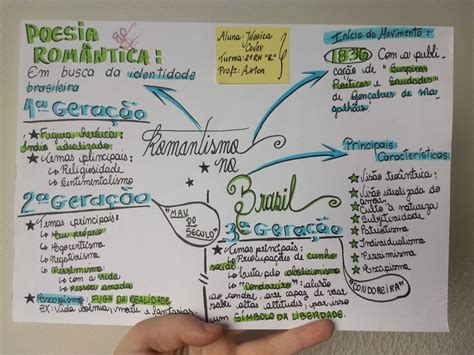 POESIA
ROMÂNTICA:
Em busca da identidade
brasileira
1ª Geração
★ Figura heróica:
Índio idealizado
★ Temas principais:
↳ Religiosidade
↳ Sentimentalismo
2ª Geração
★ Temas principais:
↳ Eu próprio
↳ Egocentrismo
↳ Negativismo
↳ Pessimismo
↳ com a vida
↳ pessoa amada
★ Escapismo: FUGA DA REALIDADE
"MAU
DO
SÉCULO"
Romantismo
no
Brasil
Aluna Jéssica
Turma: 2º RH "R"
Prof: Airton
Início do Movimento:
1836 Com a publi
cação de "Suspiros
Poéticos e Saudades"
de Gonçalves de Ma
galhães
Principais
Características:
★ Visão teocêntrica:
★ Visão idealizada do
amor
★ Culto à natureza
★ Subjetividade
★ Patriotismo
★ Individualismo
★ Pessimismo
★ Escapismo
3ª Geração
★ Temas principais:
↳ Preocupações de cunho
social
↳ Luta pelo abolicionismo
↳ "Condoreiro": alusão
ao condor, ave capaz de voar
sobre altas altitudes, por isso
um SÍMBOLO DA LIBERDADE.
"CONDOREIRA"